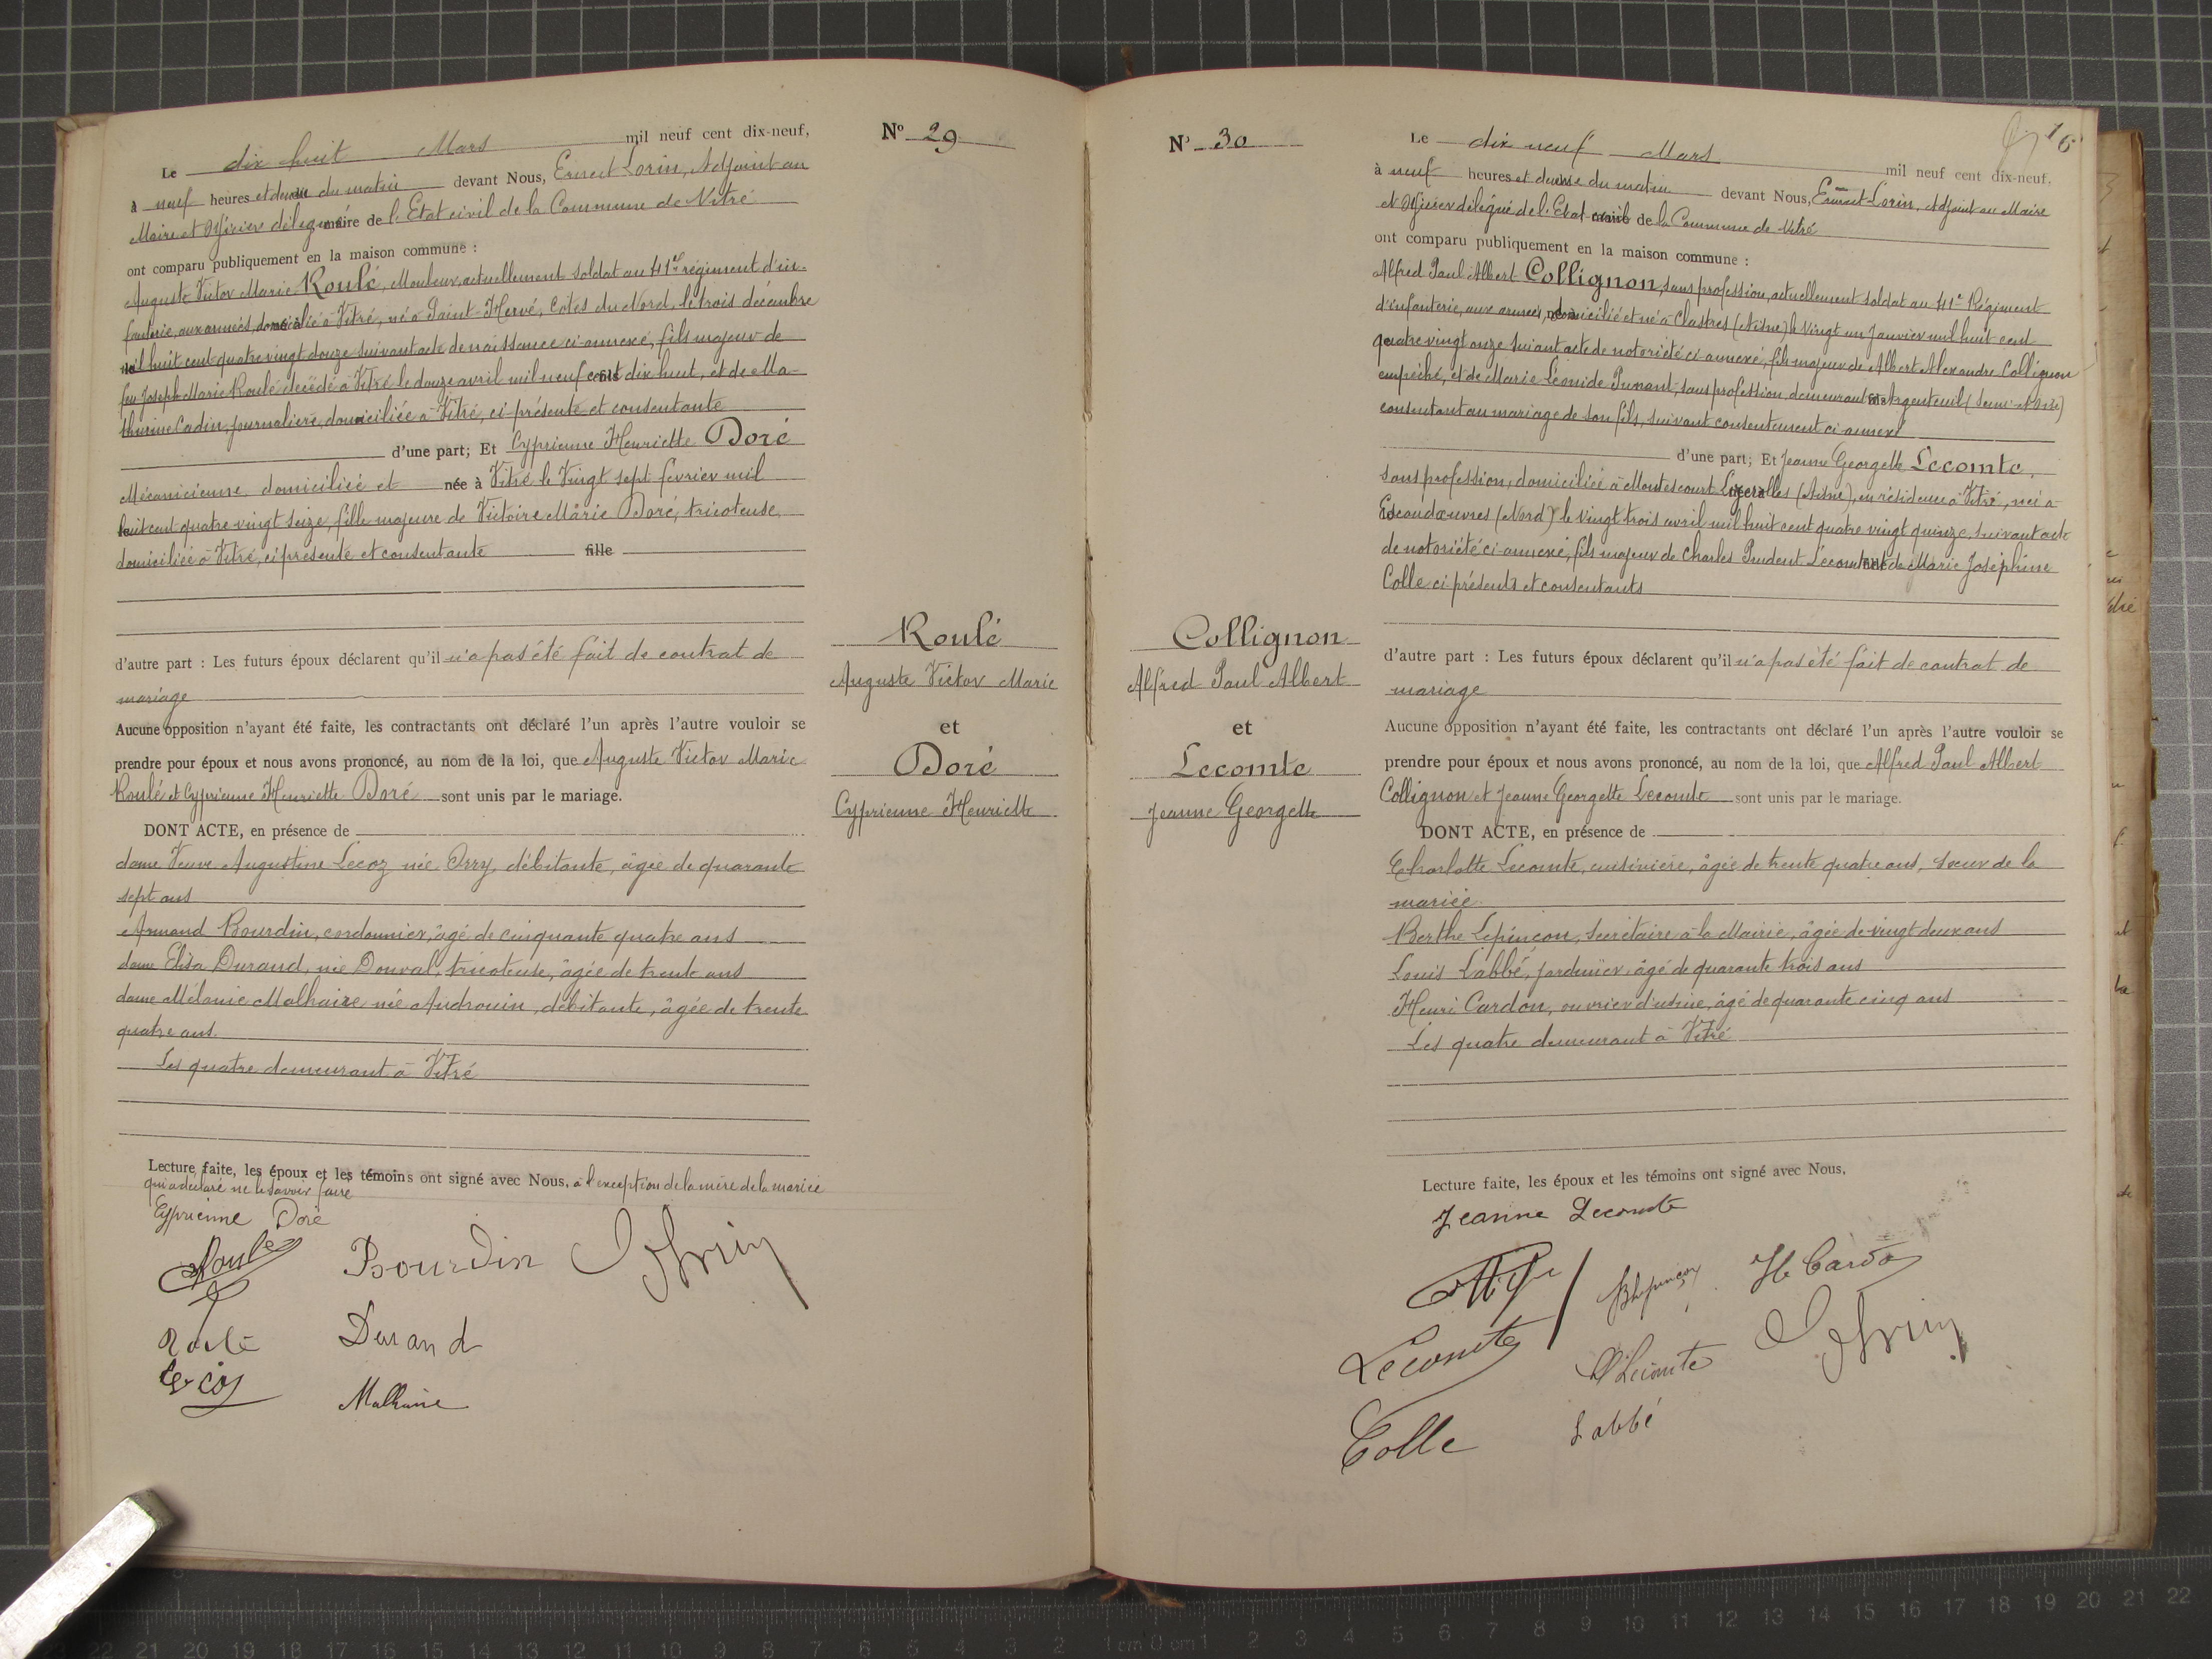 Nº 29
Le dix huit Mars mil neuf cent dix-neuf,
à neuf heures et demie du matin devant Nous, Ernest Lorin, Adjoint au
Maire et Officier délégué maire de l'Etat civil de la Commune de Vitré
ont comparu publiquement en la maison commune :
Auguste Victor Marie Roulé, Mouleur, actuellement soldat au 41e régiment d'in-
fanterie, aux armées, domicilié à Vitré, né à Saint-Hervé, Côtes du Nord, le trois décembre
mil huit cent quatre vingt douze suivant acte de naissance ci-annexé, fils majeur de
feu Joseph Marie Roulé décédé à Vitré le douze avril mil neuf cent dix huit, et de Ma-
thurine Cadin, journalière, domiciliée à Vitré, ci-présente et consentante
d'une part; Et Cyprienne Henriette Doré
Mécanicienne, domiciliée et née à Vitré le Vingt sept février mil
huit cent quatre vingt seize, fille majeure de Victoire Marie Doré, tricoteuse,
domiciliée à Vitré, ci présente et consentante fille
d'autre part : Les futurs époux déclarent qu'il n'a pas été fait de contrat de
mariage
Aucune opposition n'ayant été faite, les contractants ont déclaré l'un après l'autre vouloir se
prendre pour époux et nous avons prononcé, au nom de la loi, que Auguste Victor Marie
Roulé et Cyprienne Henriette Doré sont unis par le mariage.
DONT ACTE, en présence de
dame Veuve Augustine Lecoz née Orry, débitante, âgée de quarante
sept ans
Armand Bourdin, cordonnier, âgé de cinquante quatre ans
dame Elisa Durand, née Donval, tricoteuse, âgée de trente ans
dame Mélanie Malhaire née Audrouin, débitante, âgée de trente
quatre ans.
Les quatre demeurant à Vitré
Lecture faite, les époux et les témoins ont signé avec Nous, à l'exception de la mère de la mariée
qui a déclaré ne le savoir faire
Cyprienne Doré
Roulé
Bourdin
Durand
Lecoz
Malhaire
Roulé
Auguste Victor Marie
et
Doré
Cyprienne Henriette
Nº 30
16
Le dix neuf Mars mil neuf cent dix-neuf,
à neuf heures et demie du matin devant Nous, Ernest Lorin, Adjoint au Maire
et Officier délégué de l'Etat civil de la Commune de Vitré
ont comparu publiquement en la maison commune :
Alfred Paul Albert Collignon, sans profession, actuellement soldat au 41e Régiment
d'infanterie, aux armées, domicilié et né à Clastres (Aisne) le Vingt un Janvier mil huit cent
quatre vingt onze suivant acte de notoriété ci-annexé, fils majeur de Albert Alexandre Collignon
empêché, et de Marie Léonide Punant, sans profession, demeurant à Argenteuil (Seine-et-Oise)
consentant au mariage de son fils, suivant consentement ci-annexé
d'une part; Et Jeanne Georgette Lecomte,
sans profession, domiciliée à Montescourt Lizerolles (Aisne), en résidence à Vitré, née à
Escaudœuvres (Nord) le vingt trois avril mil huit cent quatre vingt quinze, suivant acte
de notoriété ci-annexé, fils majeur de Charles Prudent Lecomte et de Marie Joséphine
Colle ci présents et consentants
d'autre part : Les futurs époux déclarent qu'il n'a pas été fait de contrat de
mariage
Aucune opposition n'ayant été faite, les contractants ont déclaré l'un après l'autre vouloir se
prendre pour époux et nous avons prononcé, au nom de la loi, que Alfred Paul Albert
Collignon et Jeanne Georgette Lecomte sont unis par le mariage.
DONT ACTE, en présence de
Charlotte Lecomte, cuisinière, âgée de trente quatre ans, sœur de la
mariée.
Berthe Lepinçon, Secrétaire à la Mairie, âgée de vingt deux ans
Louis Labbé, jardinier, âgé de quarante trois ans
Henri Cardon, ouvrier d'usine, âgé de quarante cinq ans
Les quatre demeurant à Vitré
Lecture faite, les époux et les témoins ont signé avec Nous,
Jeanne Lecomte
H Cardon
Lecomte
C Lecomte
Colle
Labbé
Collignon
Alfred Paul Albert
et
Lecomte
Jeanne Georgette
22 21 20 19 18 17 16 15 14 13 12 11 10 9 8 7 6 5 4 3 2 1 cm 0 cm 1 2 3 4 5 6 7 8 9 10 11 12 13 14 15 16 17 18 19 20 21 22